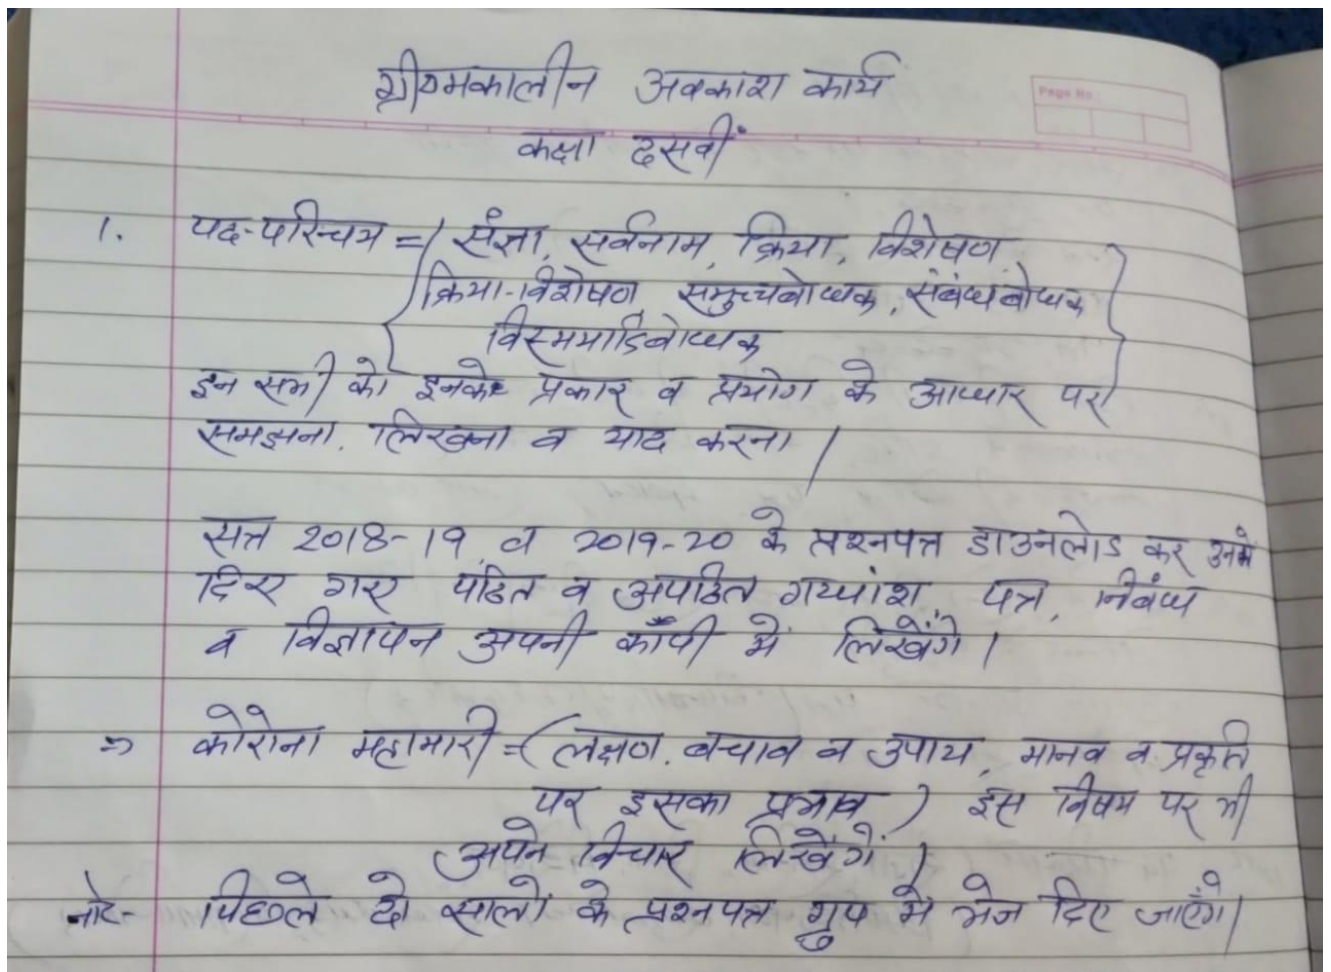 Page No.
ग्रीष्मकालीन अवकाश कार्य
कक्षा दसवीं
1. पद-परिचय = { संज्ञा, सर्वनाम, क्रिया, विशेषण
क्रिया-विशेषण समुच्चबोधक, संबंधबोधक
विस्मयादिबोधक }
इन सभी को इनके प्रकार व प्रयोग के आधार पर
समझना, लिखना व याद करना।
सत्र 2018-19 व 2019-20 के प्रश्नपत्र डाउनलोड कर उनमें
दिए गए पठित व अपठित गद्यांश, पत्र, निबंध
व विज्ञापन अपनी कॉपी में लिखेंगे।
⇒ कोरोना महामारी = (लक्षण, बचाव व उपाय, मानव व प्रकृति
पर इसका प्रभाव) इस विषय पर भी
अपने विचार लिखेंगें।
नोट पिछले दो सालों के प्रश्नपत्र ग्रुप में भेज दिए जाएँगे।